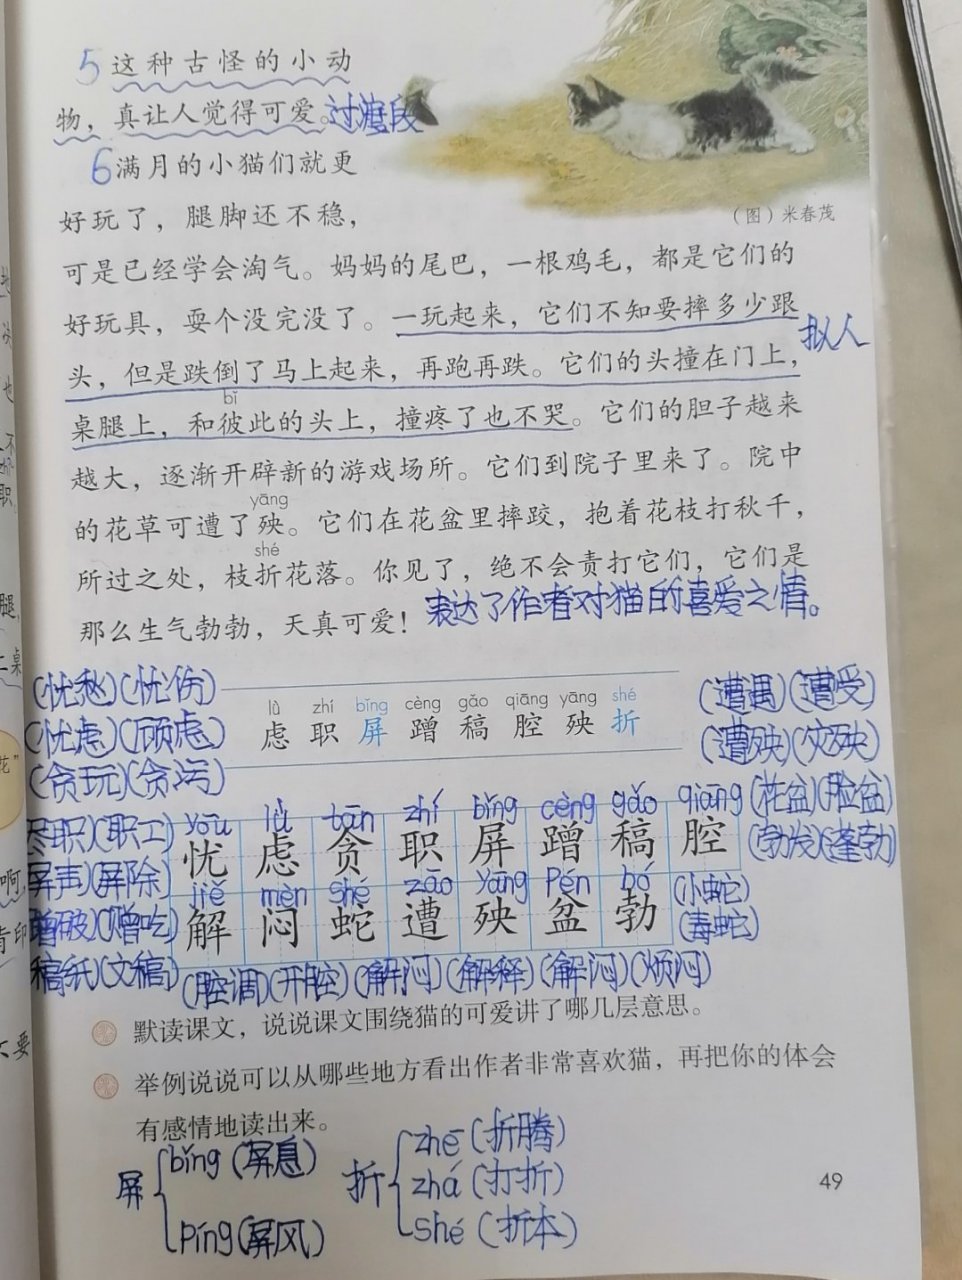 5 这种古怪的小动
物，真让人觉得可爱。过渡段
6 满月的小猫们就更
好玩了，腿脚还不稳，
（图）米春茂
可是已经学会淘气。妈妈的尾巴，一根鸡毛，都是它们的
好玩具，耍个没完没了。一玩起来，它们不知要摔多少跟
拟人
头，但是跌倒了马上起来，再跑再跌。它们的头撞在门上，
bǐ
桌腿上，和彼此的头上，撞疼了也不哭。它们的胆子越来
越大，逐渐开辟新的游戏场所。它们到院子里来了。院中
yāng
的花草可遭了殃。它们在花盆里摔跤，抱着花枝打秋千，
shé
所过之处，枝折花落。你见了，绝不会责打它们，它们是
那么生气勃勃，天真可爱！表达了作者对猫的喜爱之情。
(忧愁)(忧伤)
(忧虑)(顾虑)
(贪玩)(贪污)
lù zhí bǐng cèng gǎo qiāng yāng shé
虑 职 屏 蹭 稿 腔 殃 折
(遭遇)(遭受)
(遭殃)(灾殃)
(花盆)(脸盆)
(勃发)(蓬勃)
尽职)(职工)
屏声)(屏除)
蹭破)(蹭吃)
稿纸)(文稿)
yōu lǜ tān zhí bǐng cèng gǎo qiāng
忧 虑 贪 职 屏 蹭 稿 腔
jiě mèn shé zāo yāng pén bó
解 闷 蛇 遭 殃 盆 勃
(小蛇)
(毒蛇)
(腔调)(开腔)(解闷)(解释)(解闷)(烦闷)
默读课文，说说课文围绕猫的可爱讲了哪几层意思。
举例说说可以从哪些地方看出作者非常喜欢猫，再把你的体会
有感情地读出来。
屏 bǐng (屏息)
píng (屏风)
折 zhē (折腾)
zhá (打折)
shé (折本)
49